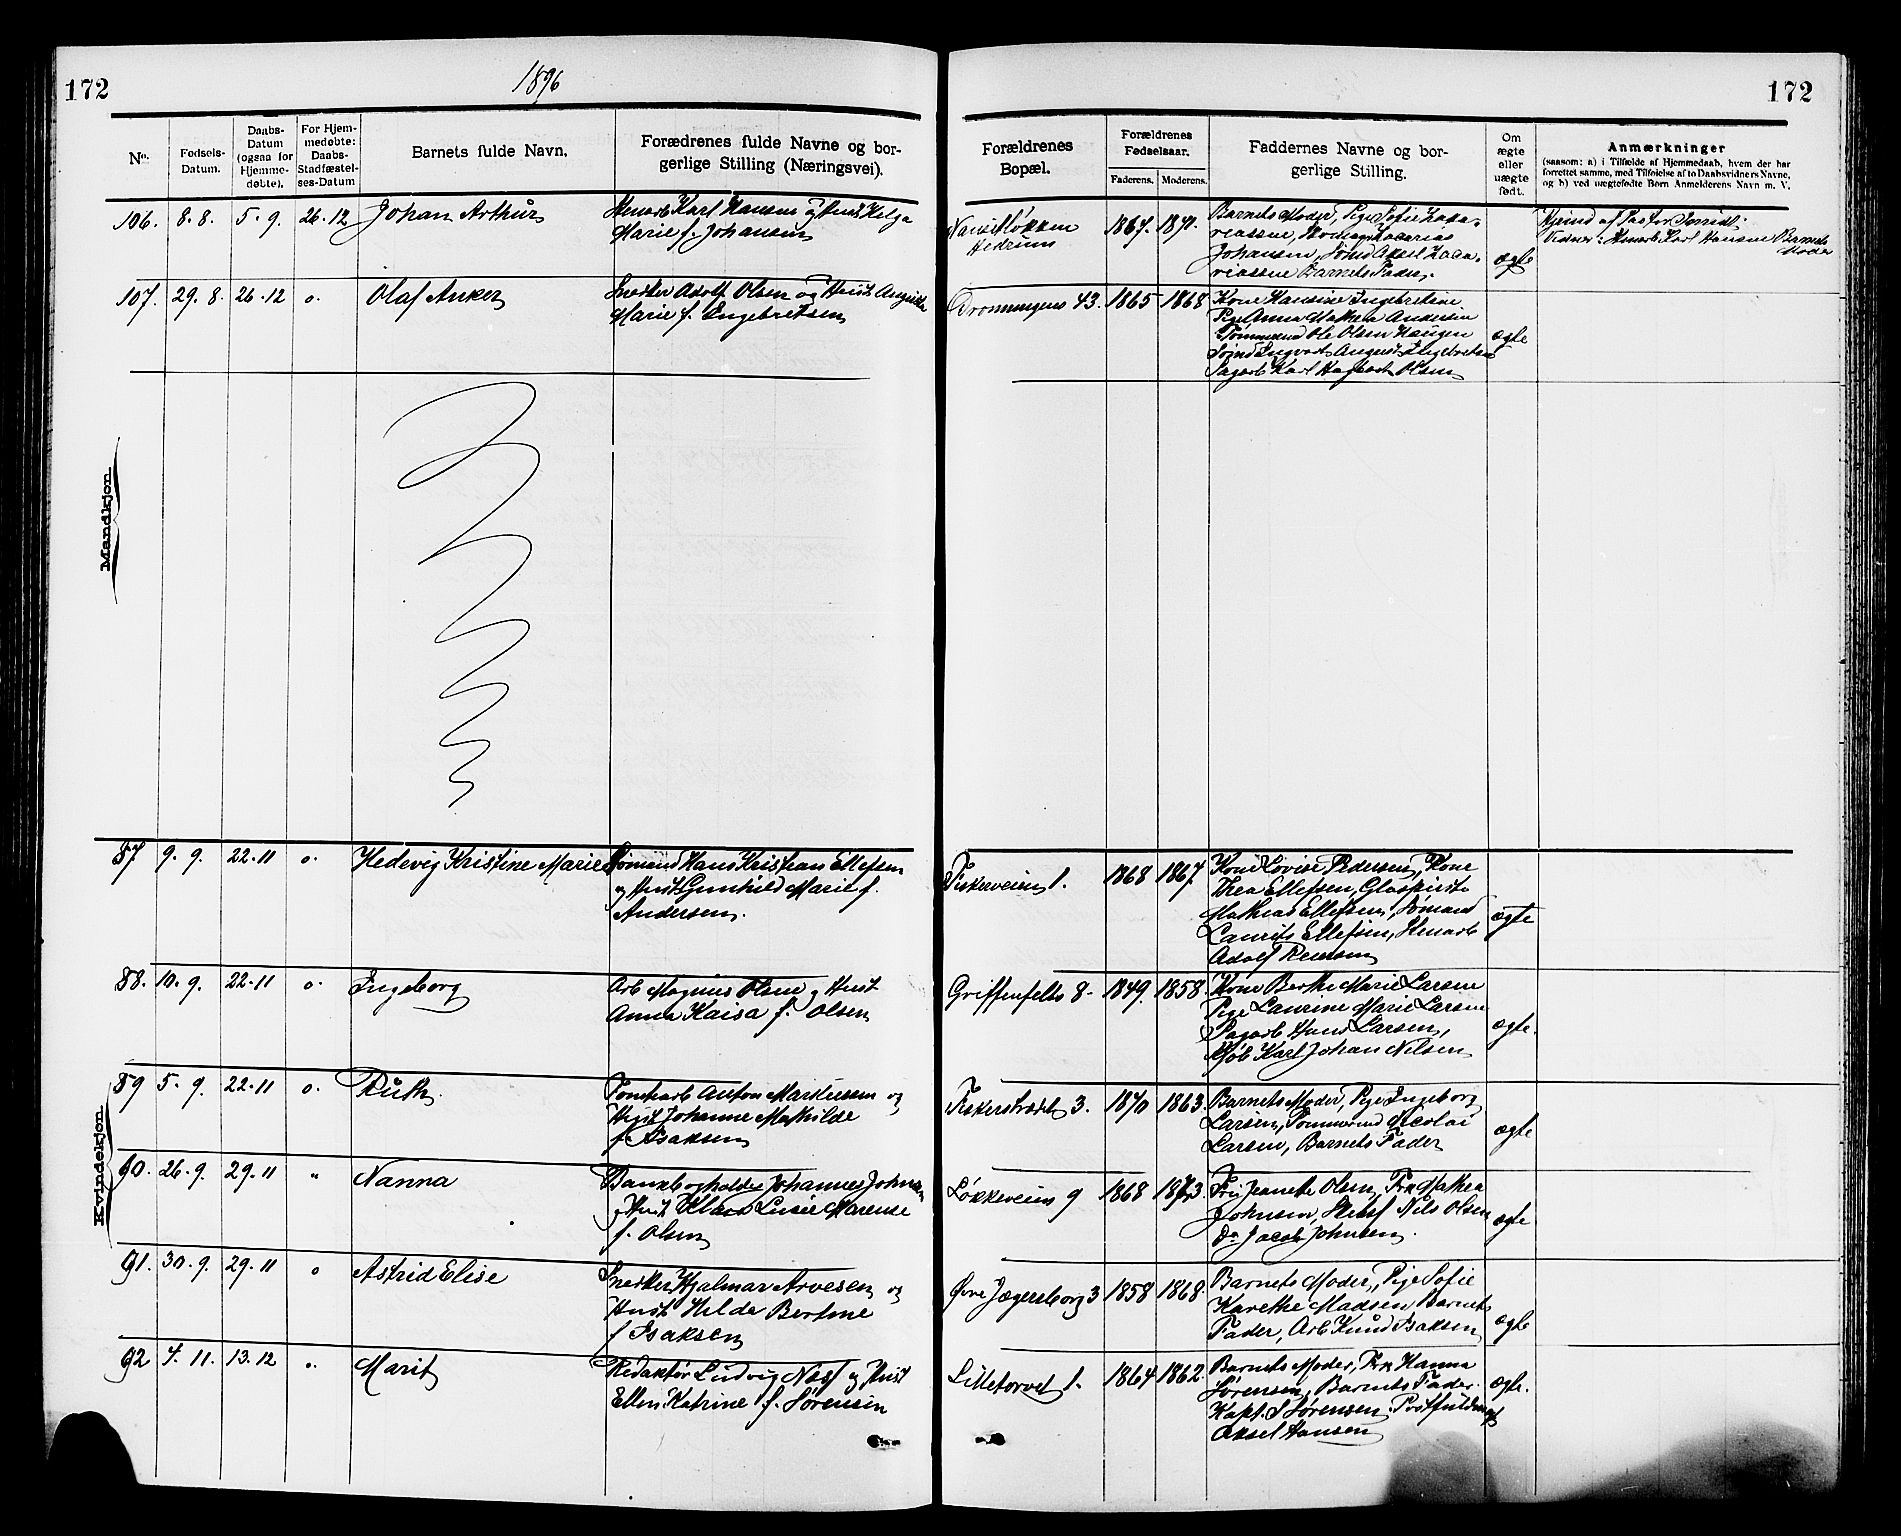 172
1896
172
No.
Fødsels-
Datum.
Daabs-
Datum
(ogsaa for
Hjemme-
døbte).
For Hjem-
medøbte:
Daabs-
Stadfæstel-
ses-Datum
Barnets fulde Navn.
Forædrenes fulde Navne og bor-
gerlige Stilling (Næringsvei).
Forældrenes
Bopæl.
Forældrenes
Fødselsaar.
Faderens. Moderens.
Faddernes Navne og bor-
gerlige Stilling.
Om
ægte
eller
uægte
født.
Anmærkninger
(saasom: a) i Tilfælde af Hjemmedaab, hvem der har
forrettet samme, med Tilføielse af to Daabsvidners Navne,
og b) ved uægtefødte Børn Anmelderens Navn m. V.
Mandkjøn
106. 8. 8. 5. 9. 26. 12 Johan Arthur
Karl Hansen og Hust Helga
Marie f. Johansen
Hedrum
1867. 1871.
Barnets Moder, Pige Sofie Zaka-
riassne, Zacarias
Johansen, Sømd Aksel Zaca-
riassne Barnets Fader.
ægte
Hjemd af Pastor
Vidner: Karl Hansne Barnets
Moder
107. 29. 8. 26. 12 o. Olaf Anker
Snekker Adolf Olsen og Hust Augusta
Marie f. Ingebretsen
Dronningens 43. 1865 1868
Kone Hansine Ingebretsne
Pige Anna Mathea Andersen
Tømmermd Ole Olsen Haugen
Sømd Ingvart August Ingebretsen
Sagarb Karl Olsen
ægte
Kvindekjøn
87 9. 9. 22. 11 o. Hedevig Kristine Marie
Sømand Hans Kristian Ellefsen
og Hust Gunhild Marie f.
Andersen.
Fiskerveien 1. 1868 1867
Kone Lovise Pedersen, Kone
Thea Ellefsen,
Mathias Ellefsen, Sømand
Laurits Ellefsen,
Adolf
ægte
88. 10. 9. 22. 11 o. Ingeborg
Arb Magnus Olsne og Hust
Anna Kaisa f. Olsen
Griffenfelts 8. 1849. 1858.
Kone Berthe Marie Larsne
Pige Laurine Marie Larsen
Sagarb Hans Larsen,
Karl Johan Nilsen
ægte.
89 5. 9. 22. 11 o. Ruth
Anton Markussen og
Hust Johanne Mathilde
f. Isaksen
Fiskerstrædet 3. 1870 1863.
Barnets Moder, Pige Ingeborg
Larsen, Tømmermd Nicolai
Larsen, Barnets Fader
ægte
90. 26. 9. 29. 11 " Nanna
Bankbogholder Johannes Johnsen
og Hust Klara Lucie Marense
f. Olsen
Løkkeveien 9 1868 1873.
Fru Jeanette Olsen, Frk Mathea
Johnsen, Nils Olsen
Do Jacob Johnsen.
ægte
91. 30. 9. 29. 11 o Astrid Elise
Snekker Hjalmar Arvesen og
Hust Hilda Bertine
f Isaksen
Øvre Jægersborg 3 1858 1868.
Barnets Moder, Pige Sofie
Karethe Madsen Barnets
Fader, Arb Knud Isaksen
ægte
92 4. 11. 13. 12 o. Marit
Redaktør Ludvig Næss og Hust
Ellen Katrine f. Sørensen
Lilletorvet 1. 1864 1862.
Barnets Moder, Frk Hanna
Sørensen, Barnets Fader.
Kapt. S Sørensen
Aksel Hansen
ægte.